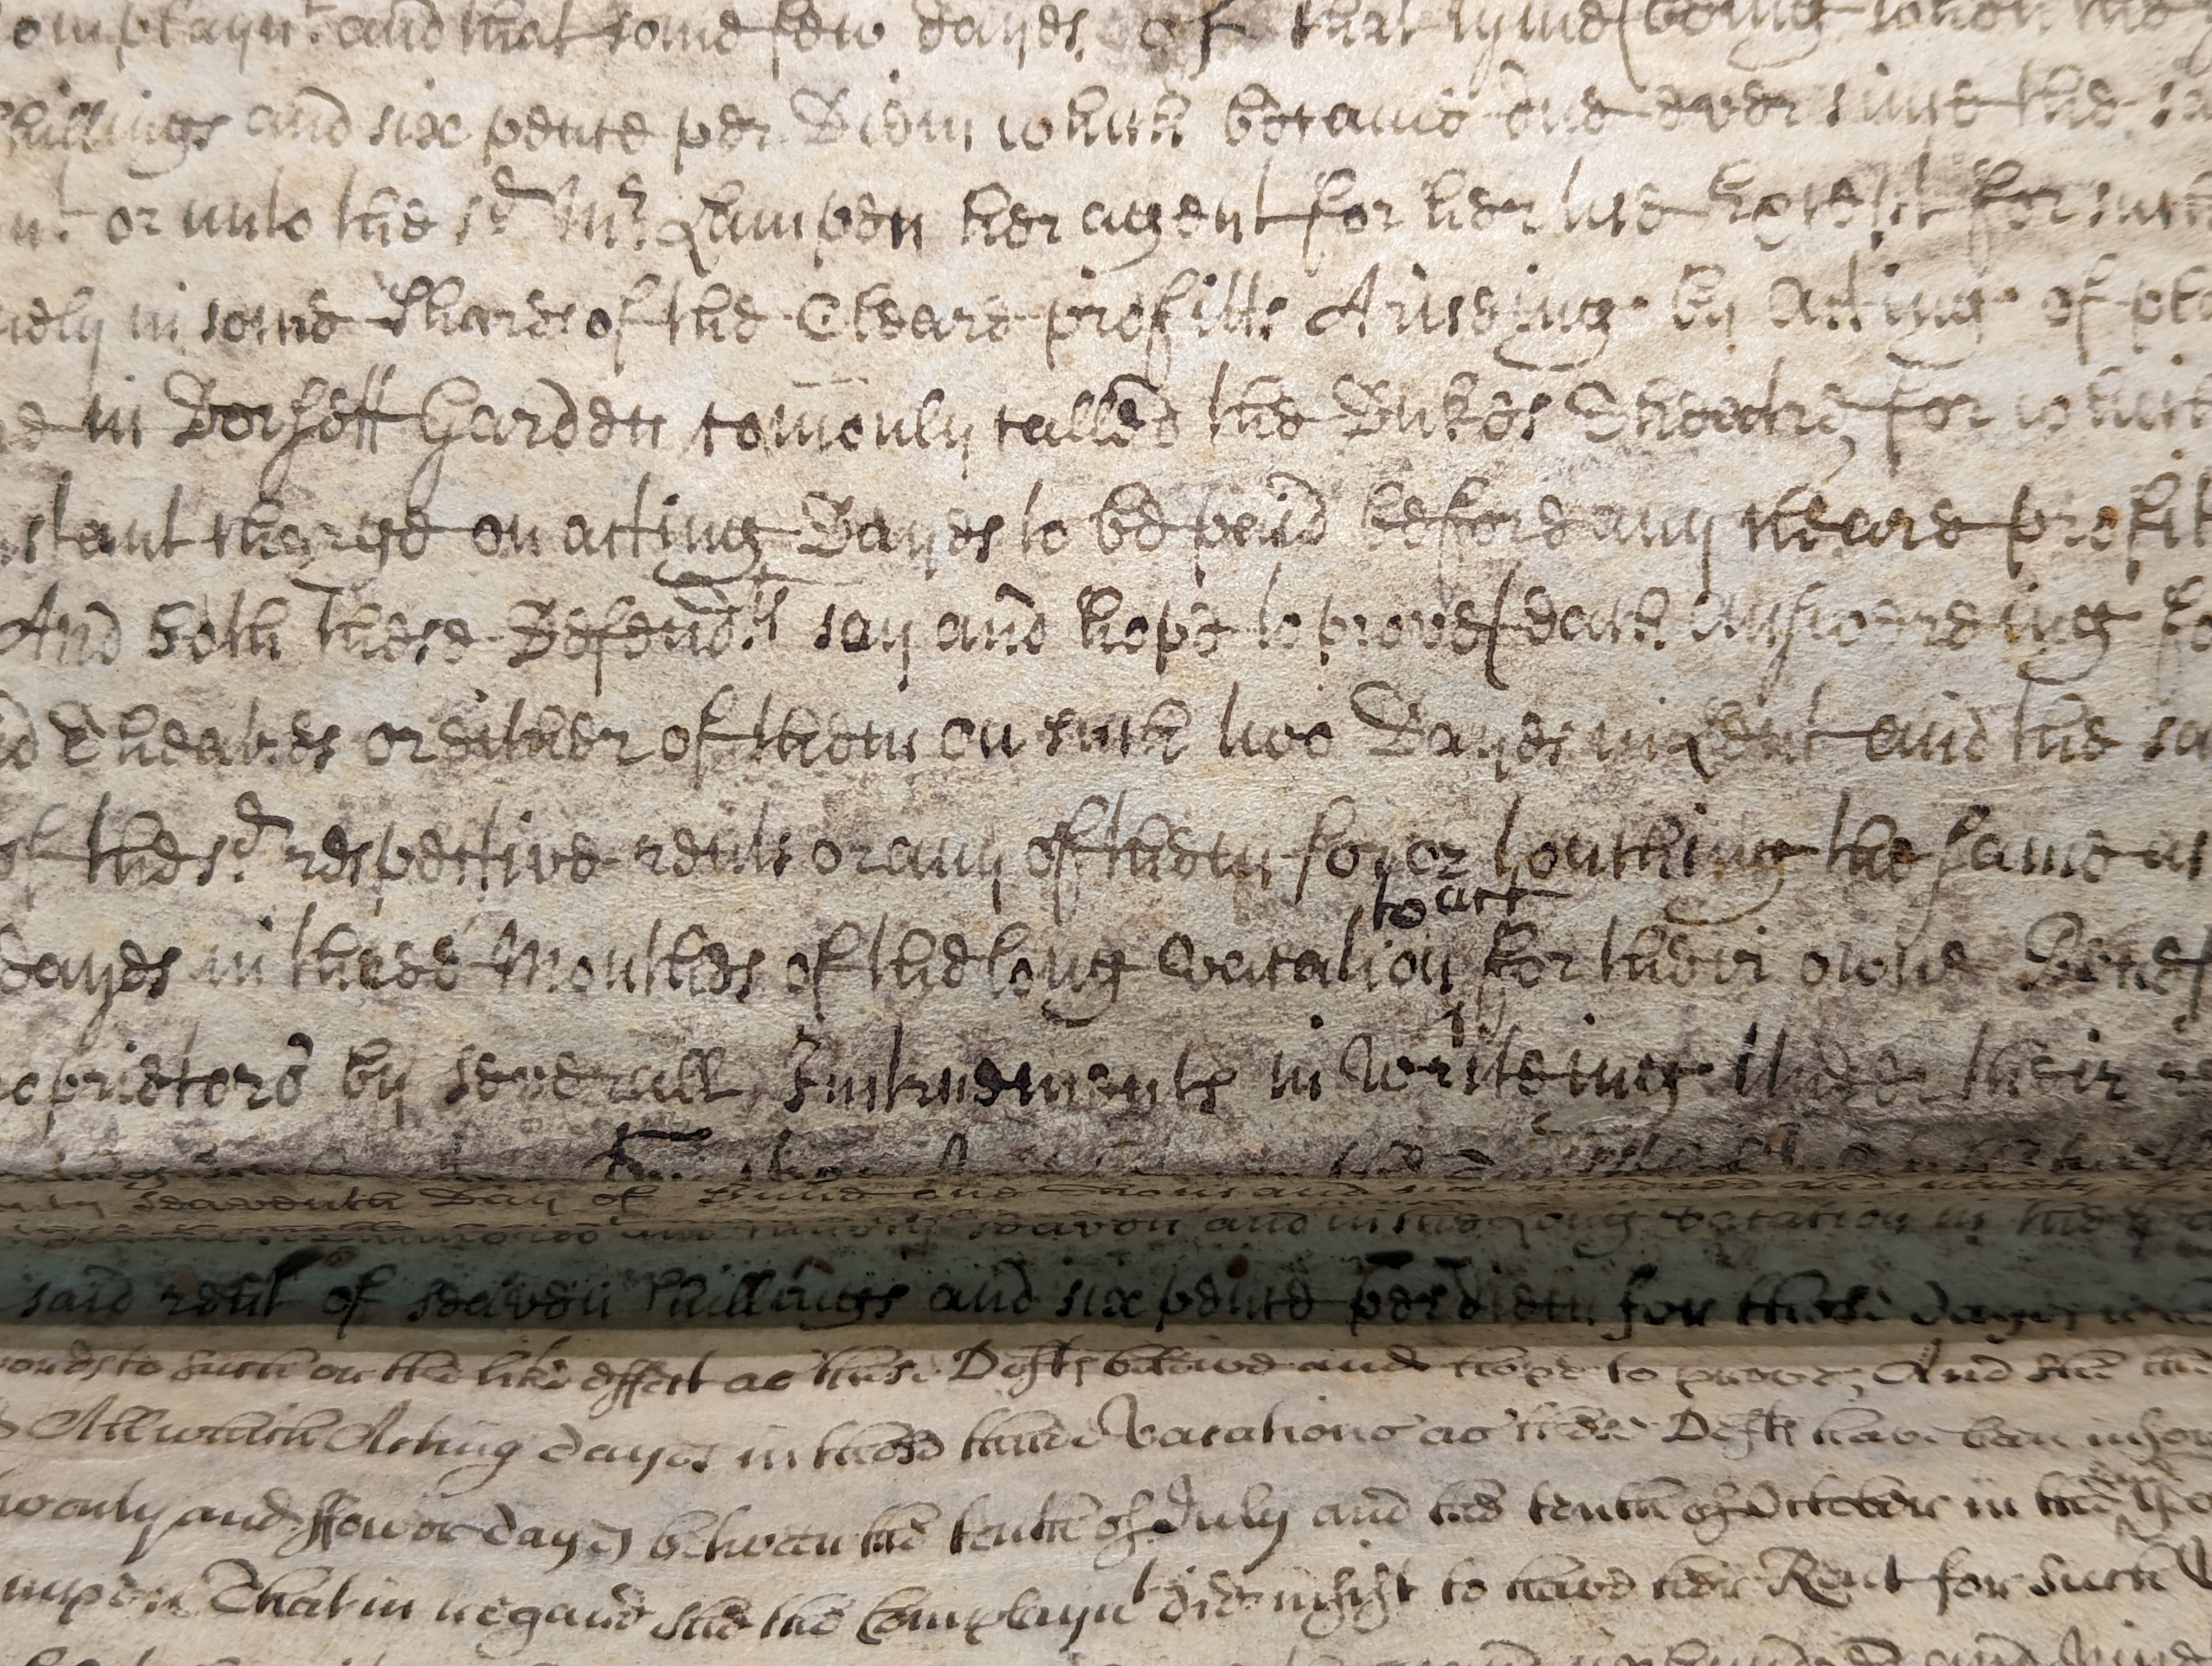 omplayn.t and that some few dayes of that tyme (being when the
shillings and six pence per Diem which became due ever since the sa
nt. or unto the s.d M.r Lampen her agent for her use Except for such
ively in some Shares of the Cleare profitts Ariseing by Acting of pl
in Dorsett Garden comonly called the Dukes Theatre, for which
nstant charge on acting Dayes to be paid before any cleare profitt
And both these Defend.ts say and hope to prove (each answereing fo
d Theatres or either of them on such two Dayes in Lent and the sa
of the s.d respective rents or any of them for or touching the same as
to act
dayes in three Monthes of the long Vacation for their owne Benef
roprietors by severall Instruements in Writeing Under their
seaventh Day of June one thousand
seaven and in the Long vacation in the
said rent of seaven shillings and six pence per diem for those dayes
words to such or the like effect as these Defts beleive and hope to prove, And then the
All which Acting dayes in those three Vacations as these Defts have been infor
twenty and ffower dayes betweene the tenth of July and the tenth of October in the
ampen That in regard she the Complayn.t did insist to have her Rent for such